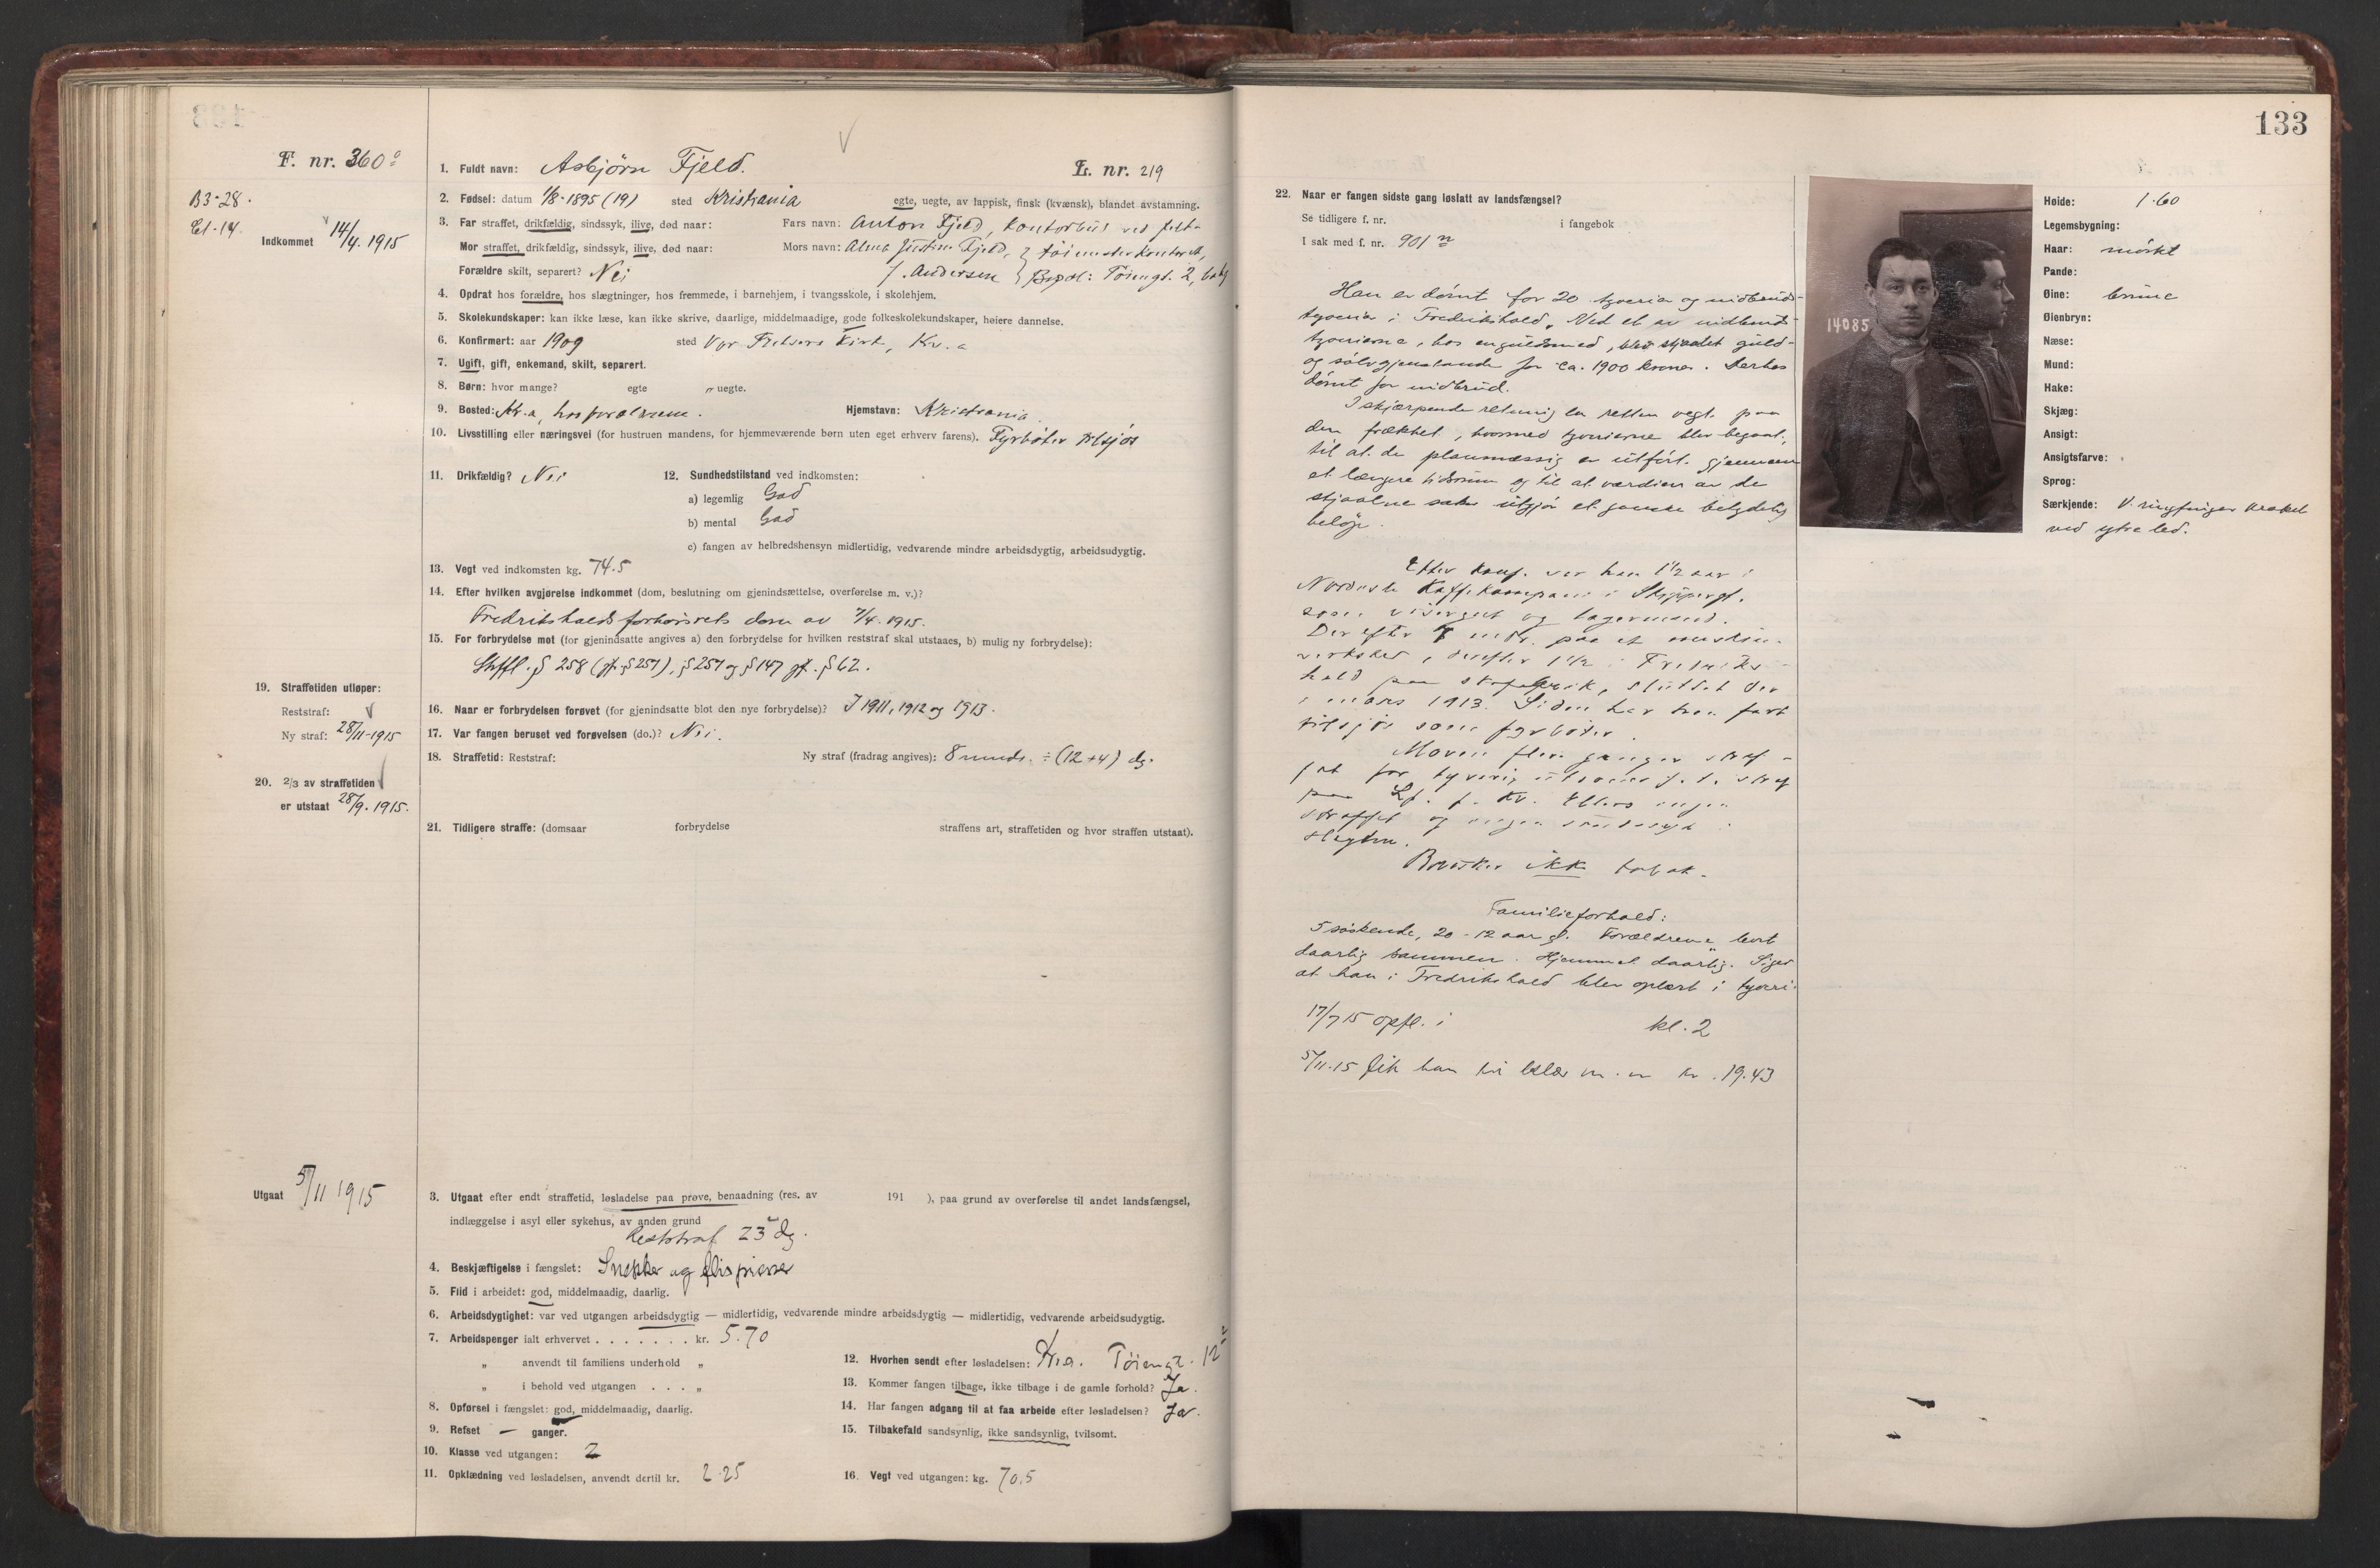 F. nr. 360
B3-28.
Cl-14.
Indkommet 14/4. 1915
1. Fuldt navn: Asbjörn Fjeld.
L. nr. 219
2. Fødsel: datum 1/8-1895 (19) sted Kristiania egte, uegte, av lappisk, finsk (kvænsk), blandet avstamning.
3. Far straffet, drikfældig, sindssyk, ilive, død naar: Fars navn: Anton Fjeld, kontorbud ved felt-
Mor straffet, drikfældig, sindssyk, ilive, død naar: Mors navn: Alma Justine Fjeld, töimesterkontoret,
Forældre skilt, separert? Nei f. Andersen Bopæl: Töiengt. 2,
4. Opdrat hos forældre, hos slægtninger, hos fremmede, i barnehjem, i tvangsskole, i skolehjem.
5. Skolekundskaper: kan ikke læse, kan ikke skrive, daarlige, middelmaadige, gode folkeskolekundskaper, høiere dannelse.
6. Konfirmert: aar 1909 sted Vor Frelsers Kirk, Kr.a
7. Ugift, gift, enkemand, skilt, separert.
8. Børn: hvor mange? egte „ uegte.
9. Bosted: Kr.a, hos forældrene. Hjemstavn: Kristiania.
10. Livsstilling eller næringsvei (for hustruen mandens, for hjemmeværende børn uten eget erhverv farens). Fyrböter tilsjös
11. Drikfældig? Nei 12. Sundhedstilstand ved indkomsten:
a) legemlig God
b) mental God
c) fangen av helbredshensyn midlertidig, vedvarende mindre arbeidsdygtig, arbeidsudygtig.
13. Vegt ved indkomsten kg. 74.5
14. Efter hvilken avgjørelse indkommet (dom, beslutning om gjenindsættelse, overførelse m. v.)?
Fredrikshalds forhörsrets dom av 7/4. 1915.
15. For forbrydelse mot (for gjenindsatte angives a) den forbrydelse for hvilken reststraf skal utstaaes, b) mulig ny forbrydelse):
Strffl. § 258 (jf. § 257), § 257 og § 147 jf. § 62.
19. Straffetiden utløper:
Reststraf:
Ny straf: 28/11-1915
16. Naar er forbrydelsen forøvet (for gjenindsatte blot den nye forbrydelse)? I 1911, 1912 og 1913.
17. Var fangen beruset ved forøvelsen (do.)? Nei.
18. Straffetid: Reststraf: Ny straf (fradrag angives): 8 mnds. ÷ (12+4) dg.
20. 2/3 av straffetiden
er utstaat 28/9. 1915.
21. Tidligere straffe: (domsaar forbrydelse straffens art, straffetiden og hvor straffen utstaat).
Utgaat 5/11 1915
3. Utgaat efter endt straffetid, løsladelse paa prøve, benaadning (res. av 191 ), paa grund av overførelse til andet landsfængsel,
indlæggelse i asyl eller sykehus, av anden grund
Reststraf 23 dg.
4. Beskjæftigelse i fængslet: Snekker og
5. Flid i arbeidet: god, middelmaadig, daarlig.
6. Arbeidsdygtighet: var ved utgangen arbeidsdygtig — midlertidig, vedvarende mindre arbeidsdygtig — midlertidig, vedvarende arbeidsudygtig.
7. Arbeidspenger ialt erhvervet . . . . . . . kr. 5.70
„ anvendt til familiens underhold „
„ i behold ved utgangen . . . „
8. Opførsel i fængslet: god, middelmaadig, daarlig.
9. Refset — ganger.
10. Klasse ved utgangen: 2
11. Opklædning ved løsladelsen, anvendt dertil kr. 2.25
12. Hvorhen sendt efter løsladelsen: Kra. Töiengt. 12
13. Kommer fangen tilbage, ikke tilbage i de gamle forhold? Ja.
14. Har fangen adgang til at faa arbeide efter løsladelsen? Ja.
15. Tilbakefald sandsynlig, ikke sandsynlig, tvilsomt.
16. Vegt ved utgangen: kg. 70.5
133
22. Naar er fangen sidste gang løslatt av landsfængsel?
Se tidligere f. nr. i fangebok
I sak med f. nr. 901 n
Han er dömt for 20 tyverier og indbruds-
tyverier i Fredrikshald. Ved et av indbruds-
tyverierne, hos en guldsmed, blev stjaalet guld-
og sölvgjenstande for ca. 1900 kroner. Derhos
dömt for indbrud.
I skjærpende retning la retten vegt paa
den frækhet, hvormed tyverierne blev begaat,
til at de planmæssig er utfört gjennem
et længere tidsrum og til at værdien av de
stjaalne saker utgjör et ganske betydelig
belöp.
Efter konf. var han 1 1/2 aar i
Nordiske Kaffekompani i Skippergt.
som visergut og lagermand.
Derefter 7 mdr. paa et maskin-
verksted, derefter 1 1/2 i Fredriks-
hald paa skofabrik, sluttet der
i mars 1913. Siden har han fart
tilsjös som fyrböter.
Moren flere ganger straf-
fet for tyveri, f. t. straf
paa Lf. f. kv. Ellers ingen
straffet og ingen sindssyk i
slegten.
Bruker ikke tobak.
Familieforhold:
5 söskende, 20-12 aar gl. Forældrene levt
daarlig sammen. Hjemmet daarlig. Siger
at han i Fredrikshald blev oplært i tyveri.
17/7 15 opfl. i kl. 2
5/11.15 fik han til klær m. m. kr. 19.43
14085
Høide: 1.60
Legemsbygning:
Haar: mörkt
Pande:
Øine: brune
Øienbryn:
Næse:
Mund:
Hake:
Skjæg:
Ansigt:
Ansigtsfarve:
Sprog:
Særkjende: V. ringfinger
ved ytre led.